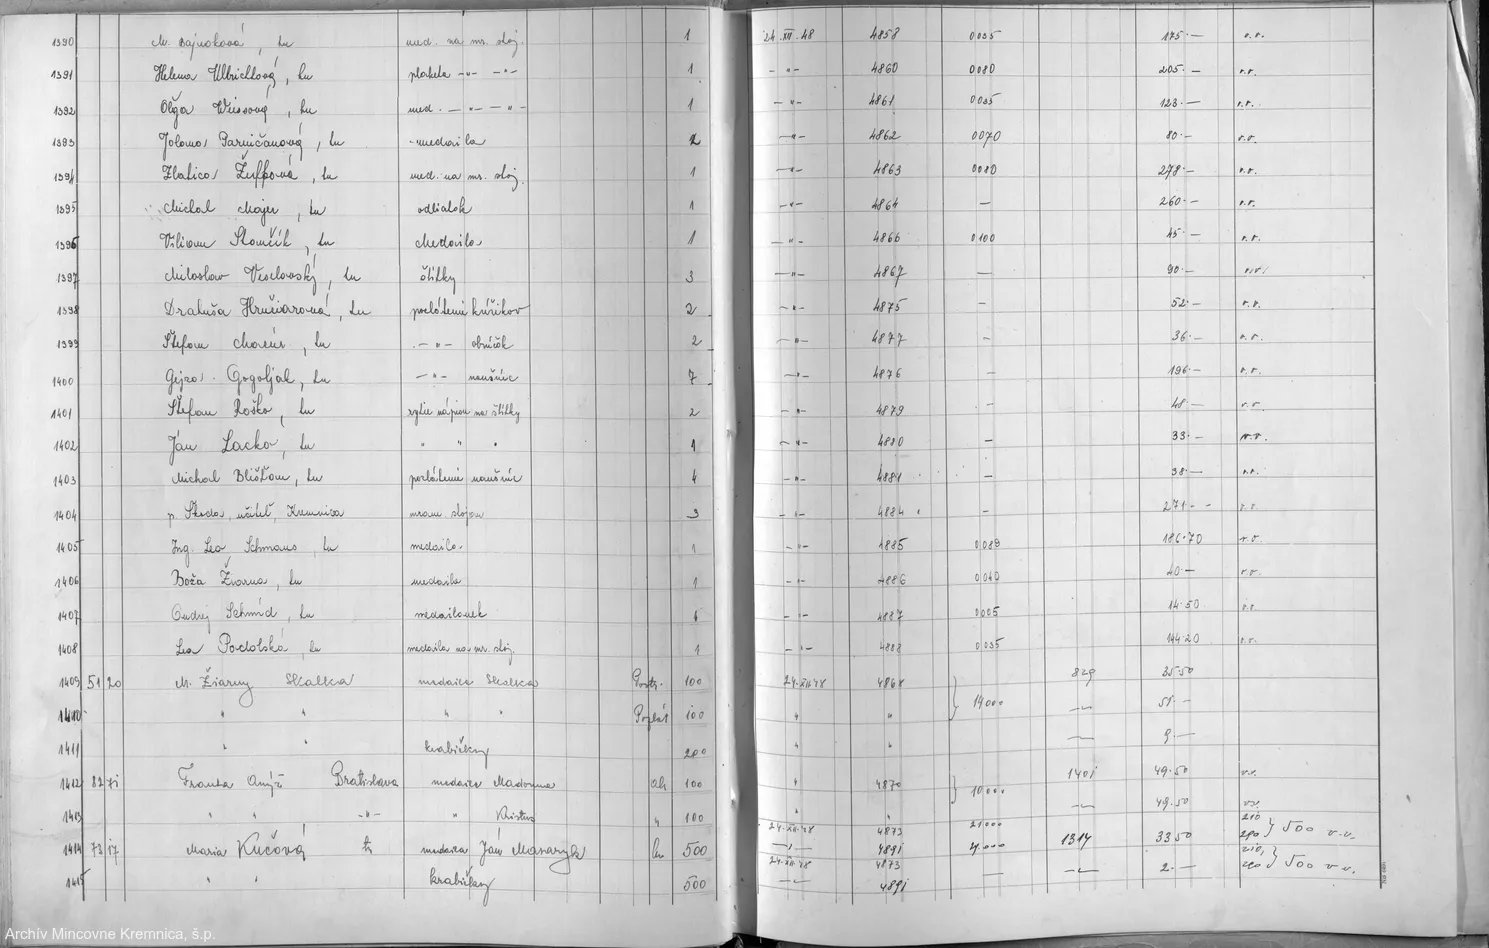 1390 M. Bajnoková, tu med. na mr. stoj. 1 24.XII.48 4858 0035 175.— v.v.
1391 Helena Ulbrichtová, tu plaketa -"- -"- 1 -"- 4860 0080 205.— v.v.
1392 Oľga Weissová, tu med. -"- -"- 1 -"- 4861 0035 123.— v.v.
1393 Jolana Parničanová, tu medaila 2 -"- 4862 0070 80.— v.v.
1394 Zlatica Žuffová, tu med. na mr. stoj. 1 -"- 4863 0080 278.— v.v.
1395 Michal Majer, tu odliatok 1 -"- 4864 — 260.— v.v.
1396 Viliam Slamčík, tu Medaila 1 -"- 4866 0100 45.— v.v.
1397 Miloslav Veselovský, tu štítky 3 -"- 4867 — 90.— v.v.
1398 Drahuša Hručiarová, tu pozlátenie krúžikov 2 -"- 4875 — 52.— v.v.
1399 Štefan tu -"- obrúčok 2 -"- 4877 — 36.— v.v.
1400 Gejza Gogoljak, tu -"- naušníc 7 -"- 4876 — 196.— v.v.
1401 Štefan Roško, tu rytie nápisu na štítky 2 -"- 4879 — 48.— v.v.
1402 Ján Lacko, tu " " " 1 -"- 4880 — 33.— v.v.
1403 Michal tu pozlátenie naušníc 4 -"- 4881 — 38.— v.v.
1404 p. Škoda, učiteľ, Kremnica mram. stojan 3 -"- 4884 — 271.— v.v.
1405 Ing. Leo Schmaus, tu medaila 1 -"- 4885 0089 186.70 v.v.
1406 Boža Žiarna, tu medaila 1 -"- 4886 0040 40.— v.v.
1407 Ondrej Schmid, tu medailonek 1 -"- 4887 0005 14.50 v.v.
1408 Lea Podolská, tu medaila na mr. stoj. 1 -"- 4888 0035 144.20 v.v.
1409 51 20 M. Žiarny Skalka medaila Skalka Postr. 100 24.XII.48 4868 14000 829 35.50
1410 " " " " Pozlát 100 " " -"- 51.—
1411 " " krabičky 200 " " -"- 9.—
1412 82 71 Bratislava medaila Madonna 100 " 4870 10000 1401 49.50 v.v.
1413 " " -"- " Kristus " 100 " " -"- 49.50 v.v.
1414 73 17 Maria Kučová tu medaila Ján Masaryk 500 24.XII.48 4873 4891 21000 1317 33.50 210 290 } 500 v.v.
1415 " " krabičky 500 24.XII.48 4873 4891 — -"- 2.— 210, 290 } 500 v.v.
Archív Mincovne Kremnica, š.p.